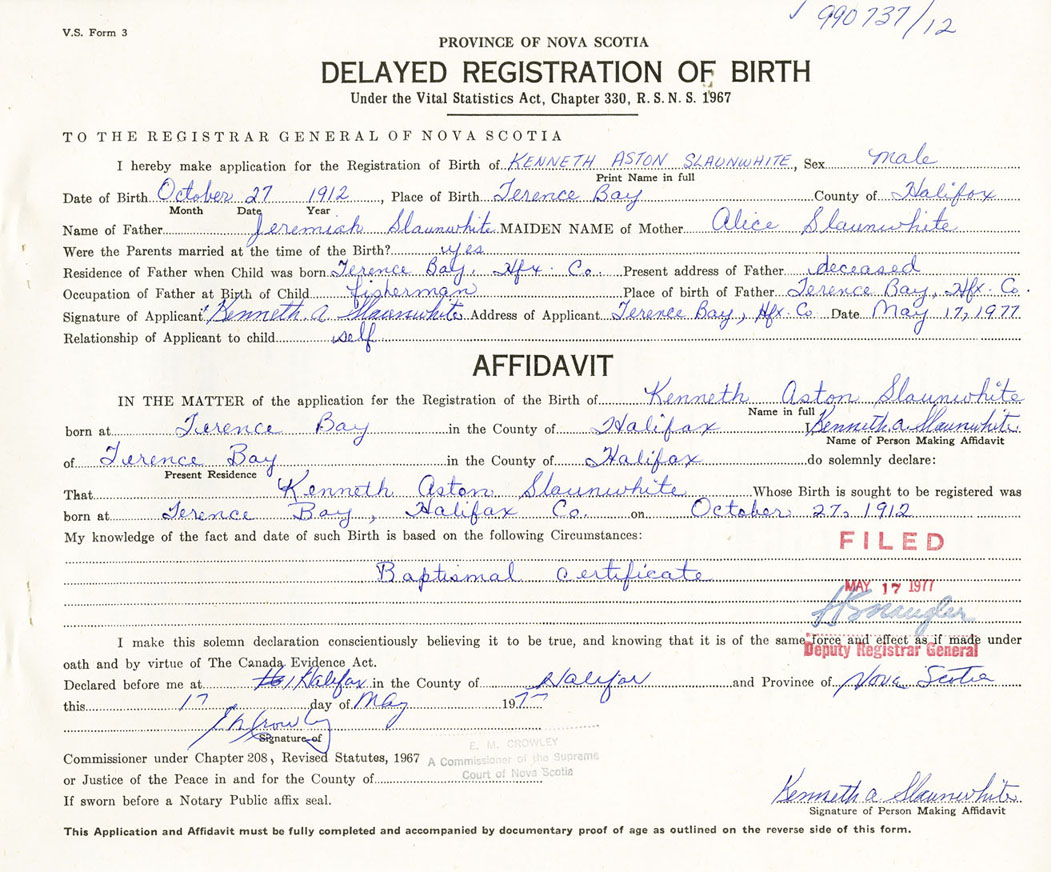 990737/12
V.S. Form 3
PROVINCE OF NOVA SCOTIA
DELAYED REGISTRATION OF BIRTH
Under the Vital Statistics Act, Chapter 330, R.S.N.S. 1967
TO THE REGISTRAR GENERAL OF NOVA SCOTIA
I hereby make application for the Registration of Birth of KENNETH ASTON SLAUNWHITE, Sex Male
Print Name in full
Date of Birth October 27 1912, Place of Birth Terence Bay County of Halifax
Month Date Year
Name of Father Jeremiah Slaunwhite MAIDEN NAME of Mother Alice Slaunwhite
Were the Parents married at the time of the Birth? yes
Residence of Father when Child was born Terence Bay, Hfx. Co. Present address of Father deceased
Occupation of Father at Birth of Child fisherman Place of birth of Father Terence Bay, Hfx. Co.
Signature of Applicant Kenneth A Slaunwhite Address of Applicant Terence Bay, Hfx. Co Date May 17, 1977
Relationship of Applicant to child self
AFFIDAVIT
IN THE MATTER of the application for the Registration of the Birth of Kenneth Aston Slaunwhite
Name in full
born at Terence Bay in the County of Halifax I, Kenneth A Slaunwhite
Name of Person Making Affidavit
of Terence Bay in the County of Halifax do solemnly declare:
Present Residence
That Kenneth Aston Slaunwhite Whose Birth is sought to be registered was
born at Terence Bay, Halifax Co. on October 27, 1912
My knowledge of the fact and date of such Birth is based on the following Circumstances:
FILED
Baptismal certificate
MAY 17 1977
I make this solemn declaration conscientiously believing it to be true, and knowing that it is of the same force and effect as if made under
Deputy Registrar General
oath and by virtue of The Canada Evidence Act.
Declared before me at Halifax in the County of Halifax and Province of Nova Scotia
this 17 day of May 1977
E M Crowley
Signature of
E. M. CROWLEY
Commissioner under Chapter 208, Revised Statutes, 1967
A Commissioner of the Supreme
Court of Nova Scotia
or Justice of the Peace in and for the County of
If sworn before a Notary Public affix seal.
Kenneth A Slaunwhite
Signature of Person Making Affidavit
This Application and Affidavit must be fully completed and accompanied by documentary proof of age as outlined on the reverse side of this form.